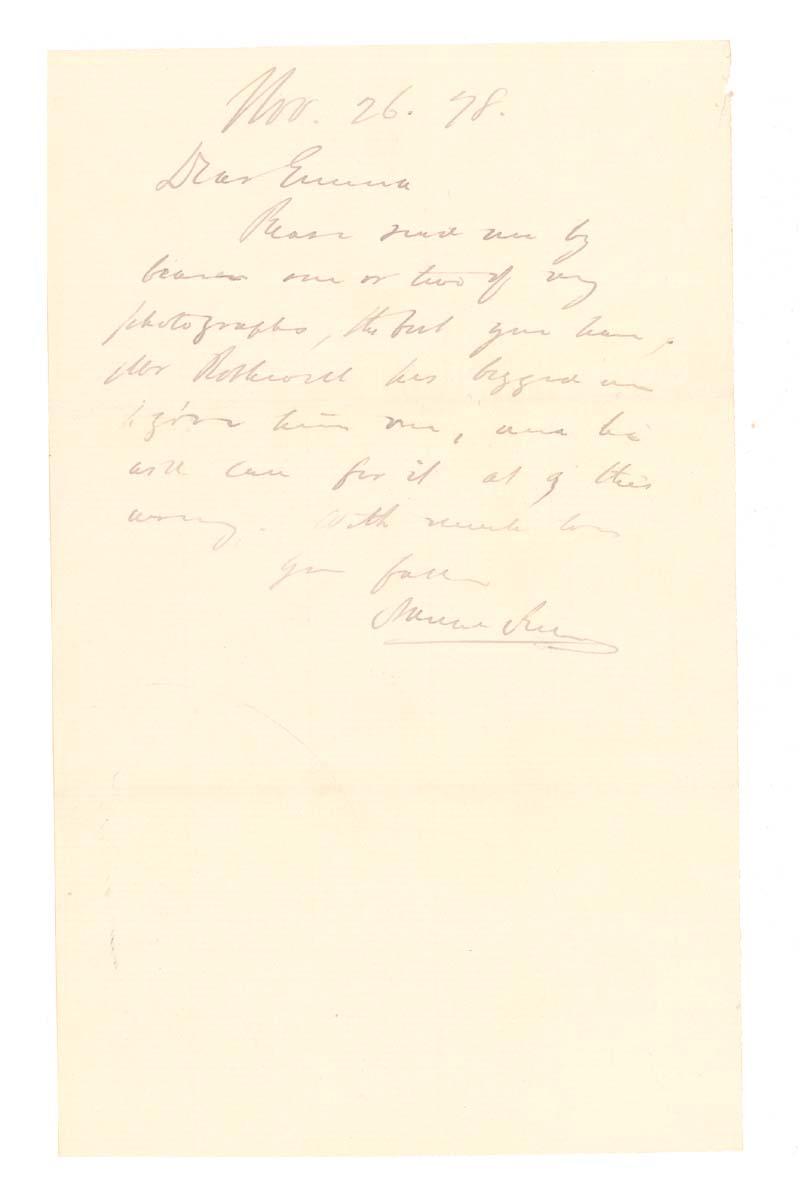 Nov. 26. 78.
Dear Emma
Please send me by
bearer one or two of my
photographs, the best you have,
Mr Rothwell has begged me
to give him one, and he
will call for it at 9 this
evening. With much love
Your father